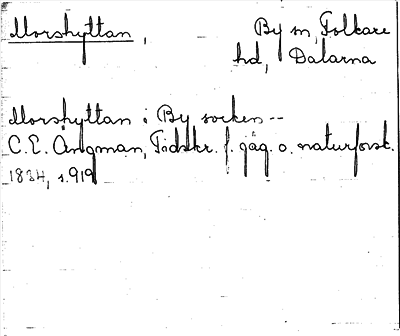 Morshyttan, By sn, Folkare
hd, Dalarna
Morshyttan i By socken --
C.E. Ångman, Tidskr. f. jäg. o. naturforsk.
1834, s. 919